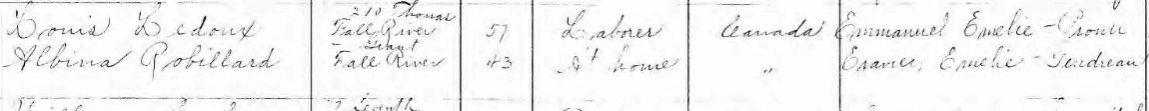 210 Thomas
Louis Ledoux Fall River 57 Laborer Canada Emmanuel Emelie - Proux
- Grant
Albina Robillard Fall River 43 At home " Emelie - Gendreau
Seventh